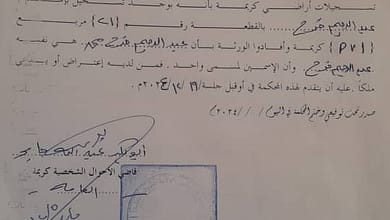 تسجيلات أراضي كريمة بأنه يوجد تسجيل بإسم
عبد الرحيم فرح بالقطعة رقم {٢١} مربع
{٧١} كريمة وأفادوا الورثة بأن عبد الرحيم فرح محمد هي نفسه
عبد الرحيم فرح وأن الإسمين لمسمى واحد . فمن لديه إعتراض أو
ملكاً. عليه أن يتقدم لهذه المحكمة في أو قبل جلسة ١٩/١٢/٢٠٢٤م.
صدر تحت توقيعي وختم المحكمة في اليوم / / ٢٠٢٤م
قاضي الأحوال الشخصية كريمة